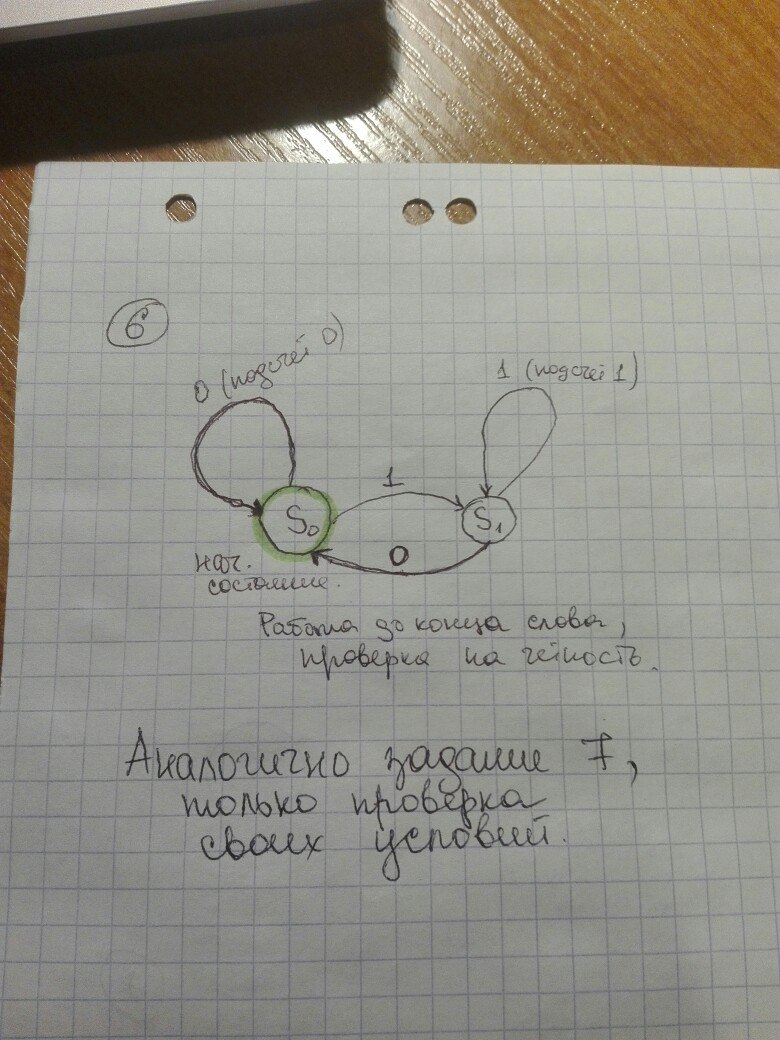 6
0 (подсчёт 0)
1 (подсчёт 1)
1
S₀
S₁
0
нач.
состояние.
Работа до конца слова,
проверка на чётность.
Аналогично задание 7,
только проверка
своих условий.